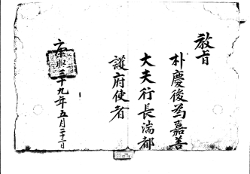 敎旨
朴慶後爲嘉善
大夫行長湍都
護府使者
康熙二十九年五月二十日